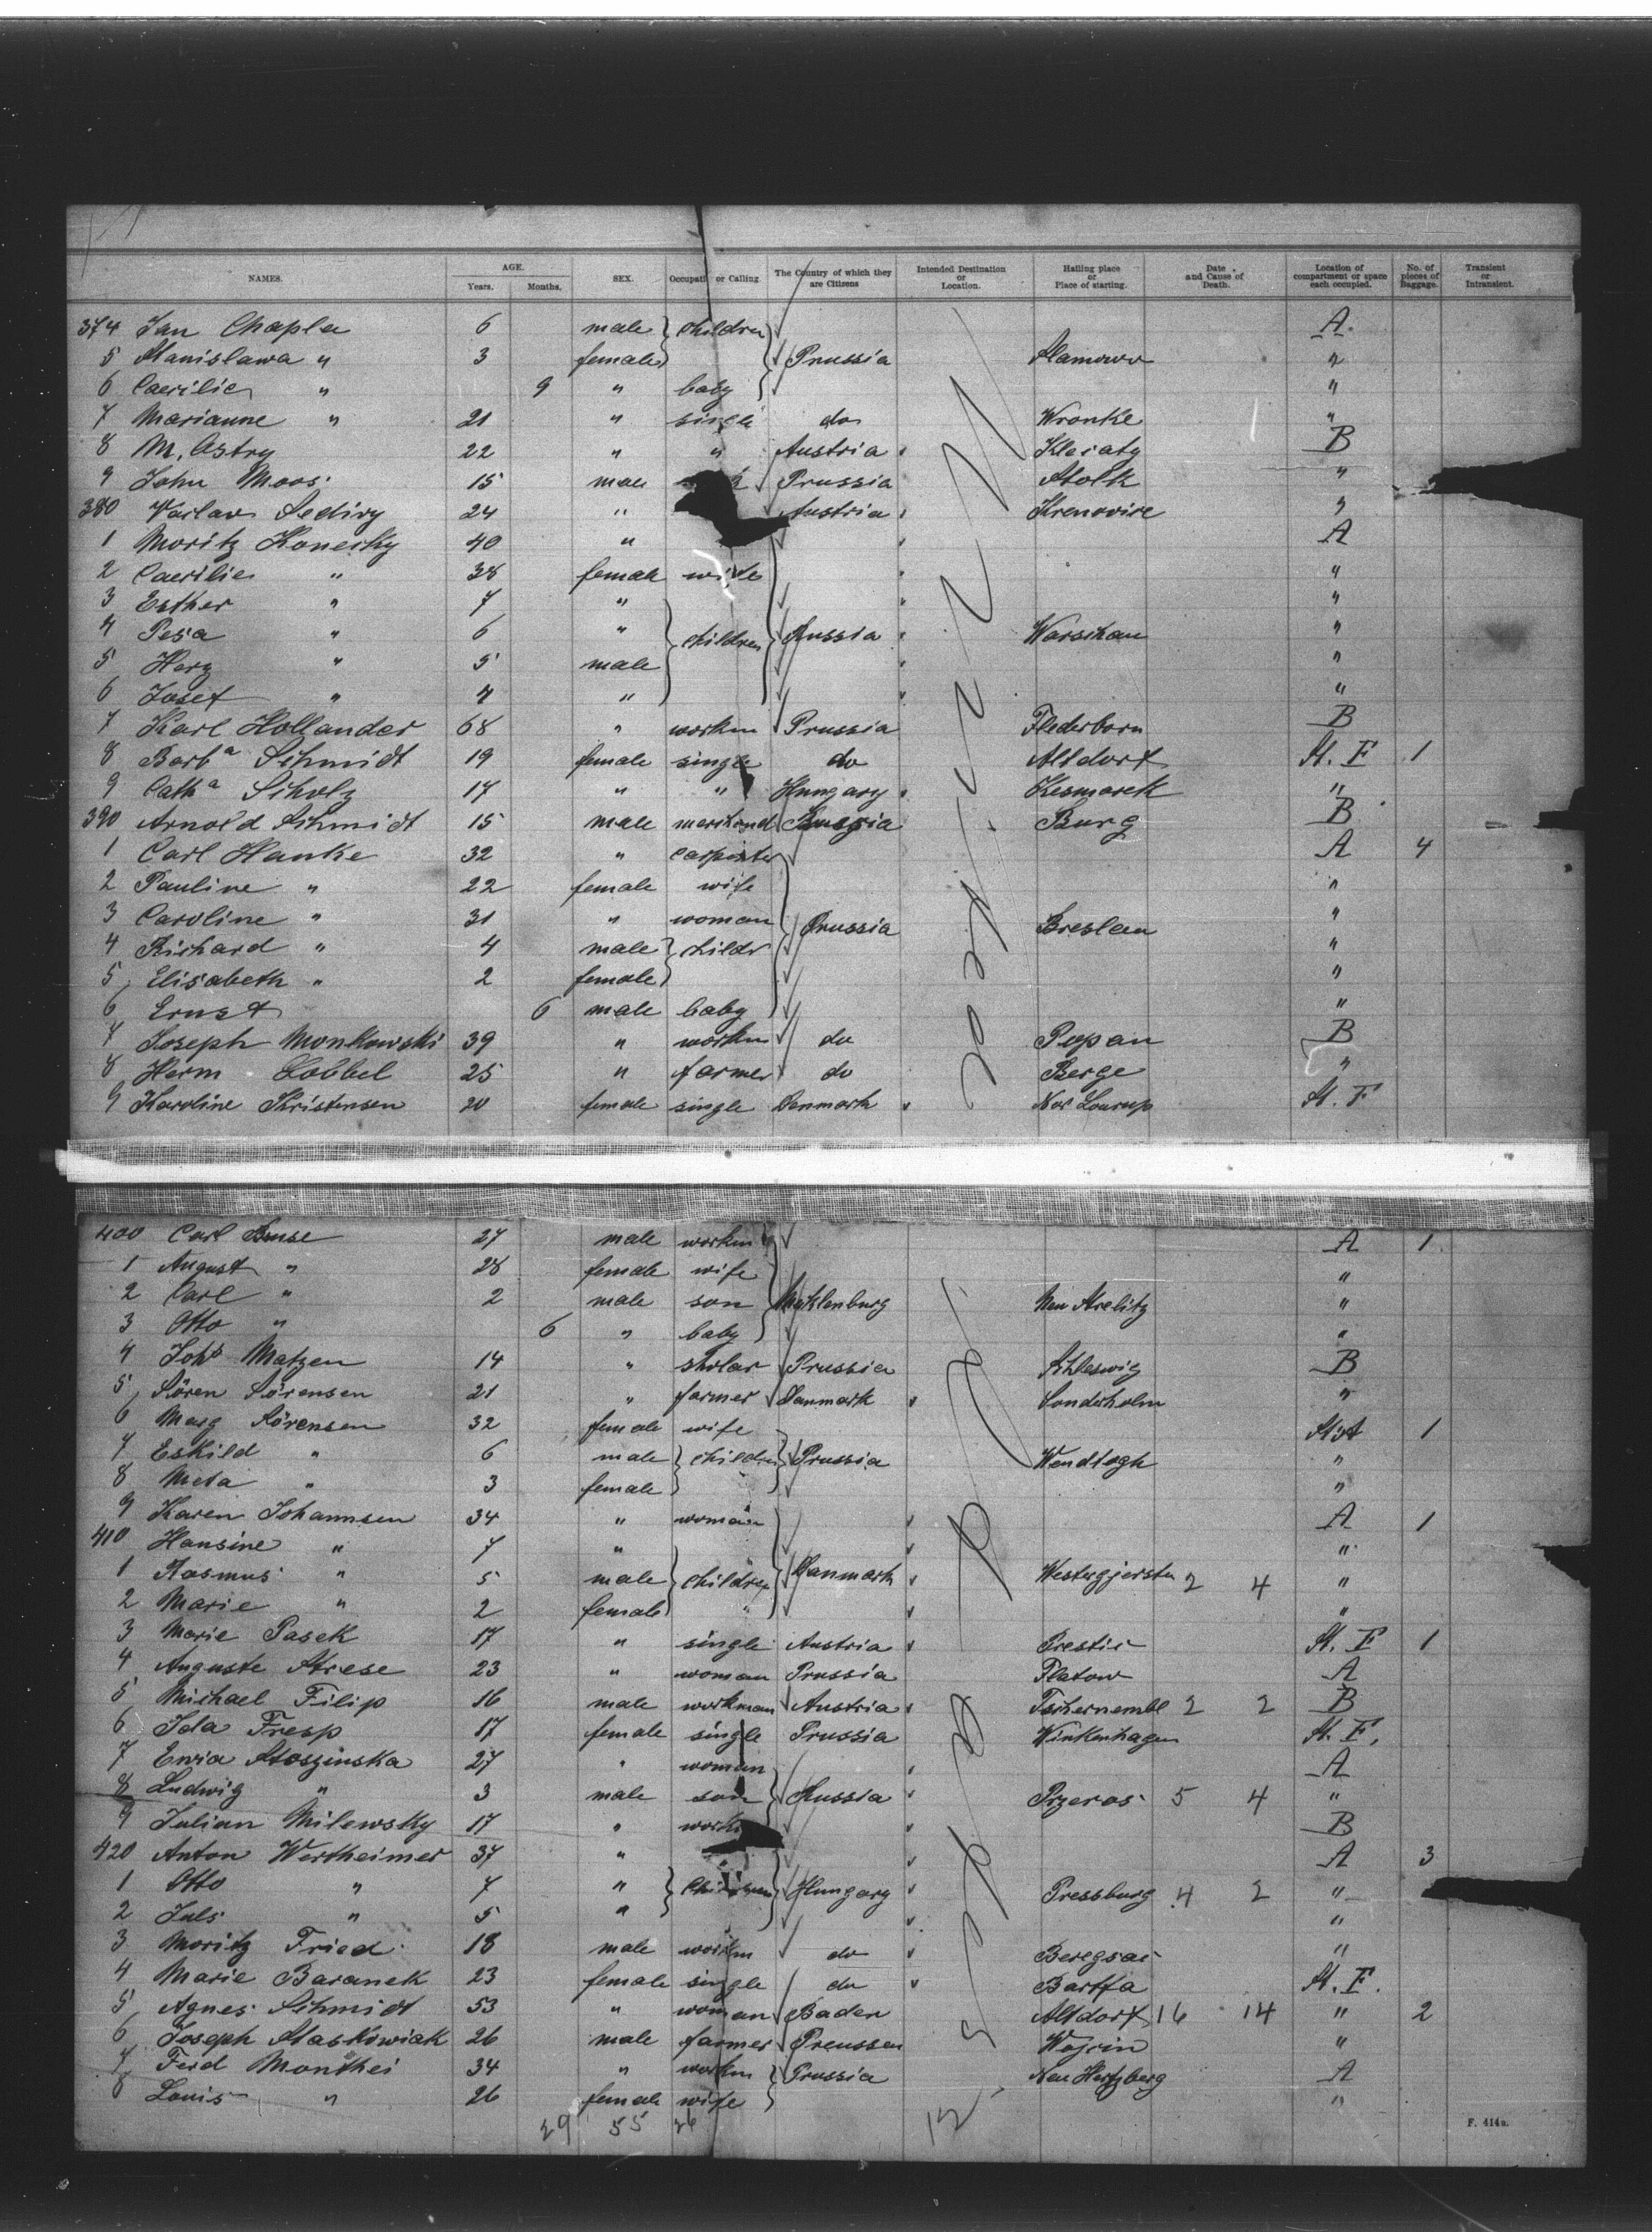 NAMES. AGE. Years. Months. SEX. Occupati or Calling. The Country of which they are Citizens Intended Destination or Location. Hailing place or Place of starting. Date and Cause of Death. Location of compartment or space each occupied. No. of pieces of Baggage. Transient or Intransient.
374 Jan Chapla 6 male children A.
5 Stanislawa " 3 female Prussia "
6 Caecilie " 9 " baby "
7 Marianne " 21 " single do Wronke "
8 M. Astry 22 " " Austria B
9 John Moos 15 male Prussia Stolk "
380 Vaclav Sedivy 24 " Austria Krenovice "
1 Moritz Konecky 40 " A
2 Caecilie " 38 female wife "
3 Esther " 7 " "
4 Pesa " 6 " children Russia Warschau "
5 Herz " 5 male "
6 Josef " 4 " "
7 Karl Hollander 68 " workm Prussia Flederborn B
8 Barba Schmidt 19 female single do Altdorf St. F 1
9 Catha Scholz 17 " " Hungary Kesmarek "
390 Arnold Schmidt 15 male Burg B
1 Carl Hanke 32 " carpinter A 4
2 Pauline " 22 female wife "
3 Caroline " 31 " woman Prussia Breslau "
4 Richard " 4 male childr "
5 Elisabeth " 2 female "
6 Ernst 6 male baby "
7 Joseph Monkowski 39 " workm do B
8 Herm Lobbel 25 " farmer do Berge "
9 Karoline Kristensen 20 female single Denmark St. F
400 Carl Buse 27 male workm A 1
1 August " 28 female wife "
2 Carl " 2 male son Mecklenburg Neu Strelitz "
3 Otto " 6 " baby "
4 Johs Matzen 14 " sholar Prussia Schleswig B
5 Sören Sörensen 21 " farmer Danmark Sonderholm "
6 Marg Sörensen 32 female wife 1
7 Eskild " 6 male childrn Prussia "
8 Meta " 3 female "
9 Karen Johannsen 34 " woman A 1
410 Hansine " 7 " "
1 Rasmus " 5 male children Danmark 2 4 "
2 Marie " 2 female "
3 Marie Pasek 17 " single Austria Prestic St. F 1
4 Auguste Strese 23 " woman Prussia Flatow A
5 Michael Filip 16 male workman Austria Tschernembl 2 2 B
6 Ida Fresp 17 female single Prussia Winkenhagen St. F.
7 Ewa Stoszinska 27 " woman A
8 Ludwig " 3 male son Russia 5 4 "
9 Julian Milewsky 17 " workm B
420 Anton Wertheimer 37 " A 3
1 Otto " 7 " Children Hungary Pressburg 4 2 "
2 Juls " 5 " "
3 Moritz Fried 18 male workm do "
4 Marie Baranek 23 female single do Bartfa St. F.
5 Agnes Schmidt 53 " woman Baden Altdorf 16 14 " 2
6 Joseph Staskowiak 26 male farmer Preussen "
7 Ferd Monthei 34 " workm Prussia Neu Hertzberg A
8 Louis " 26 female wife "
29 55 26 12
F. 414a.